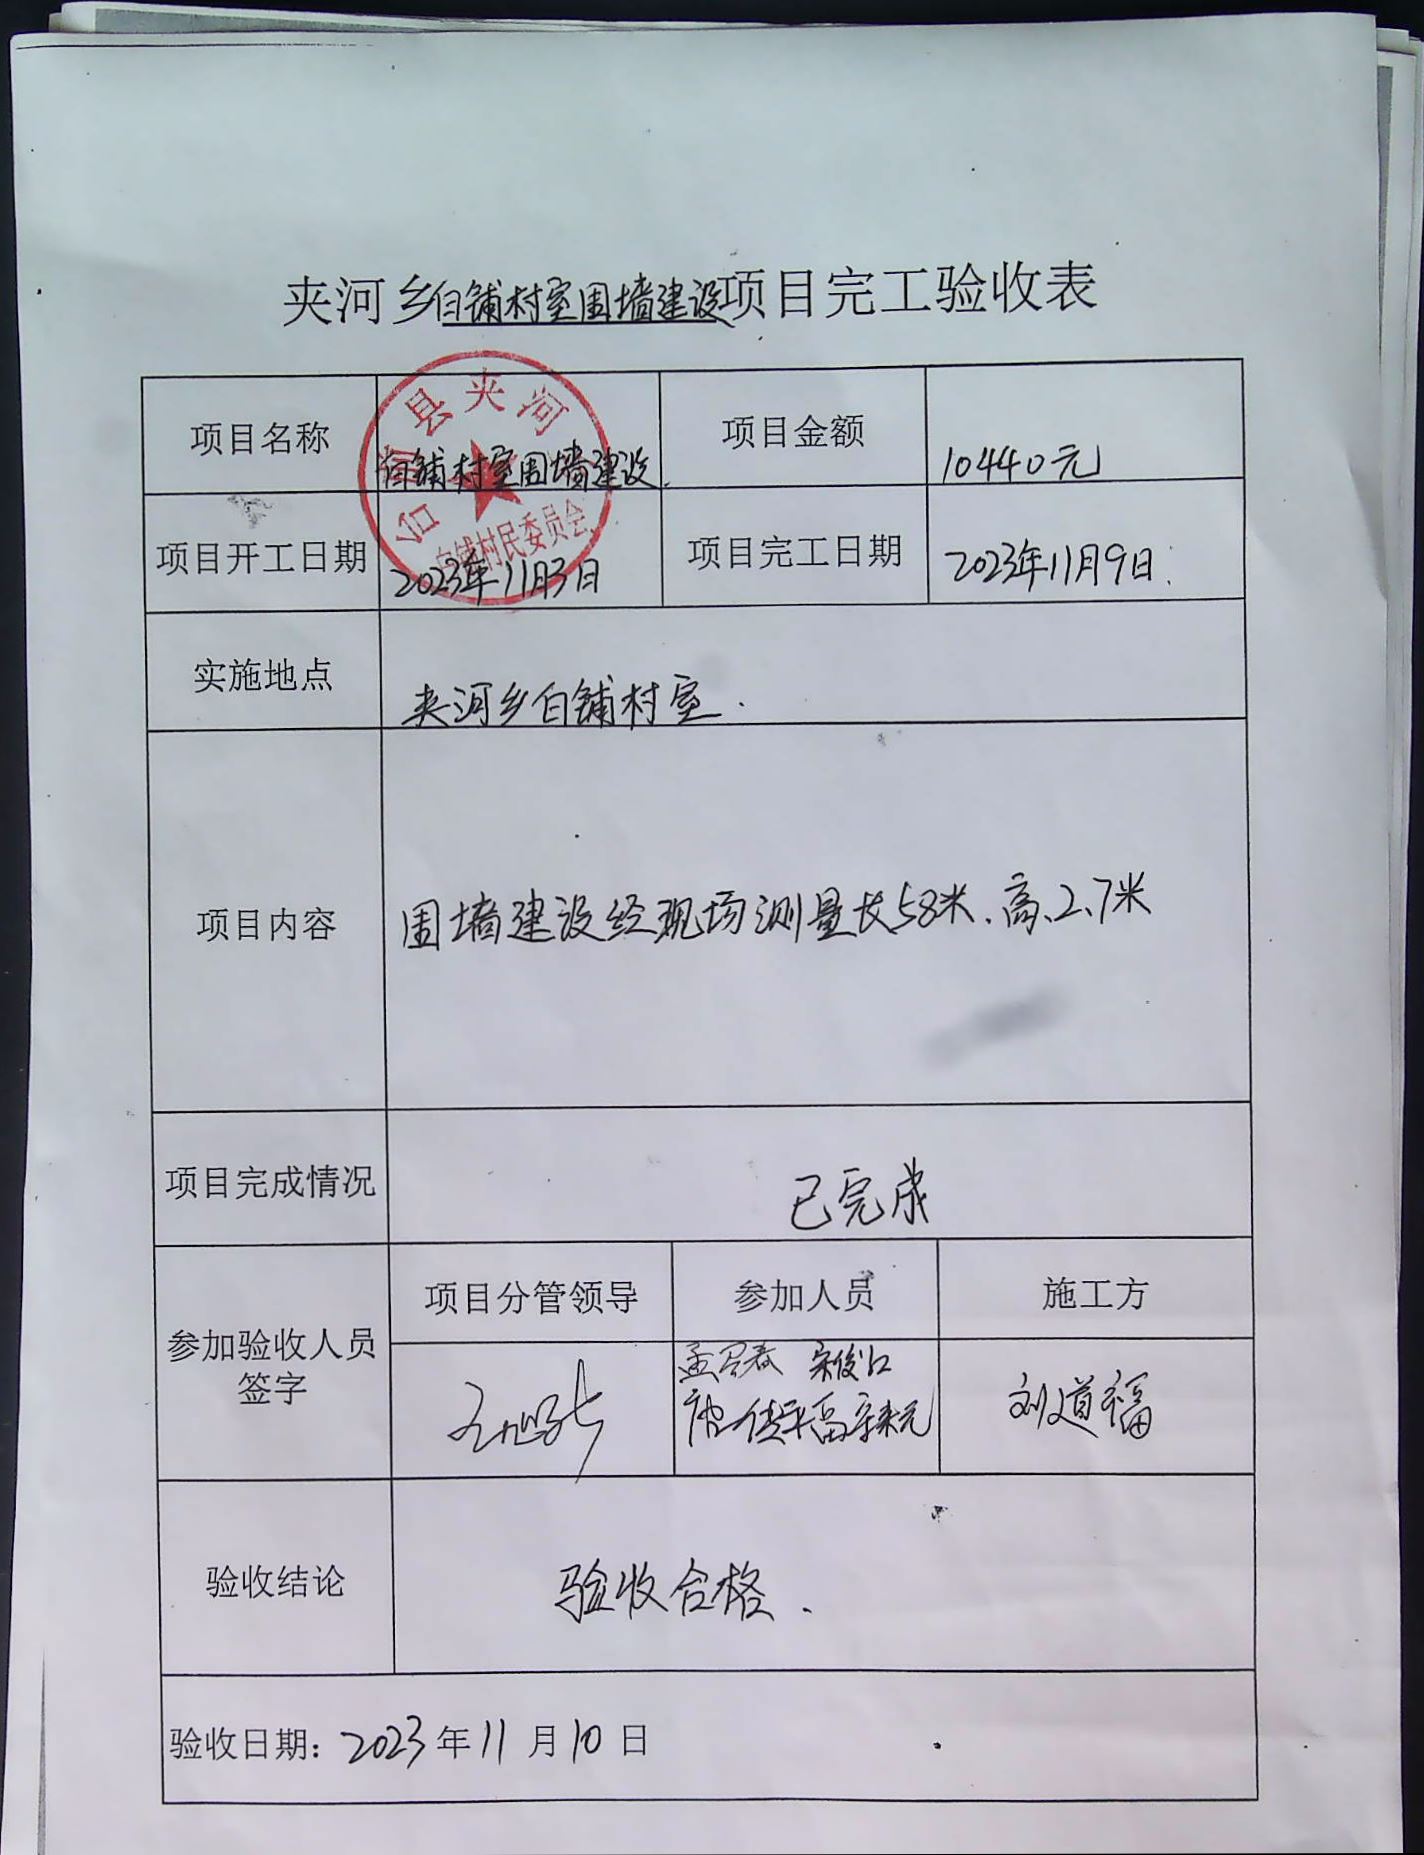 夹河乡白铺村室围墙建设项目完工验收表
项目名称
白铺村室围墙建设.
项目金额
10440元
县夹河
白铺村民委员会
项目开工日期
2023年11月3日
项目完工日期
2023年11月9日.
实施地点
夹河乡白铺村室.
项目内容
围墙建设经现场测量长58米、高、2、7米
项目完成情况
已完成
参加验收人员
签字
项目分管领导
参加人员
施工方
刘道福
验收结论
验收合格.
验收日期：2023年11月10日